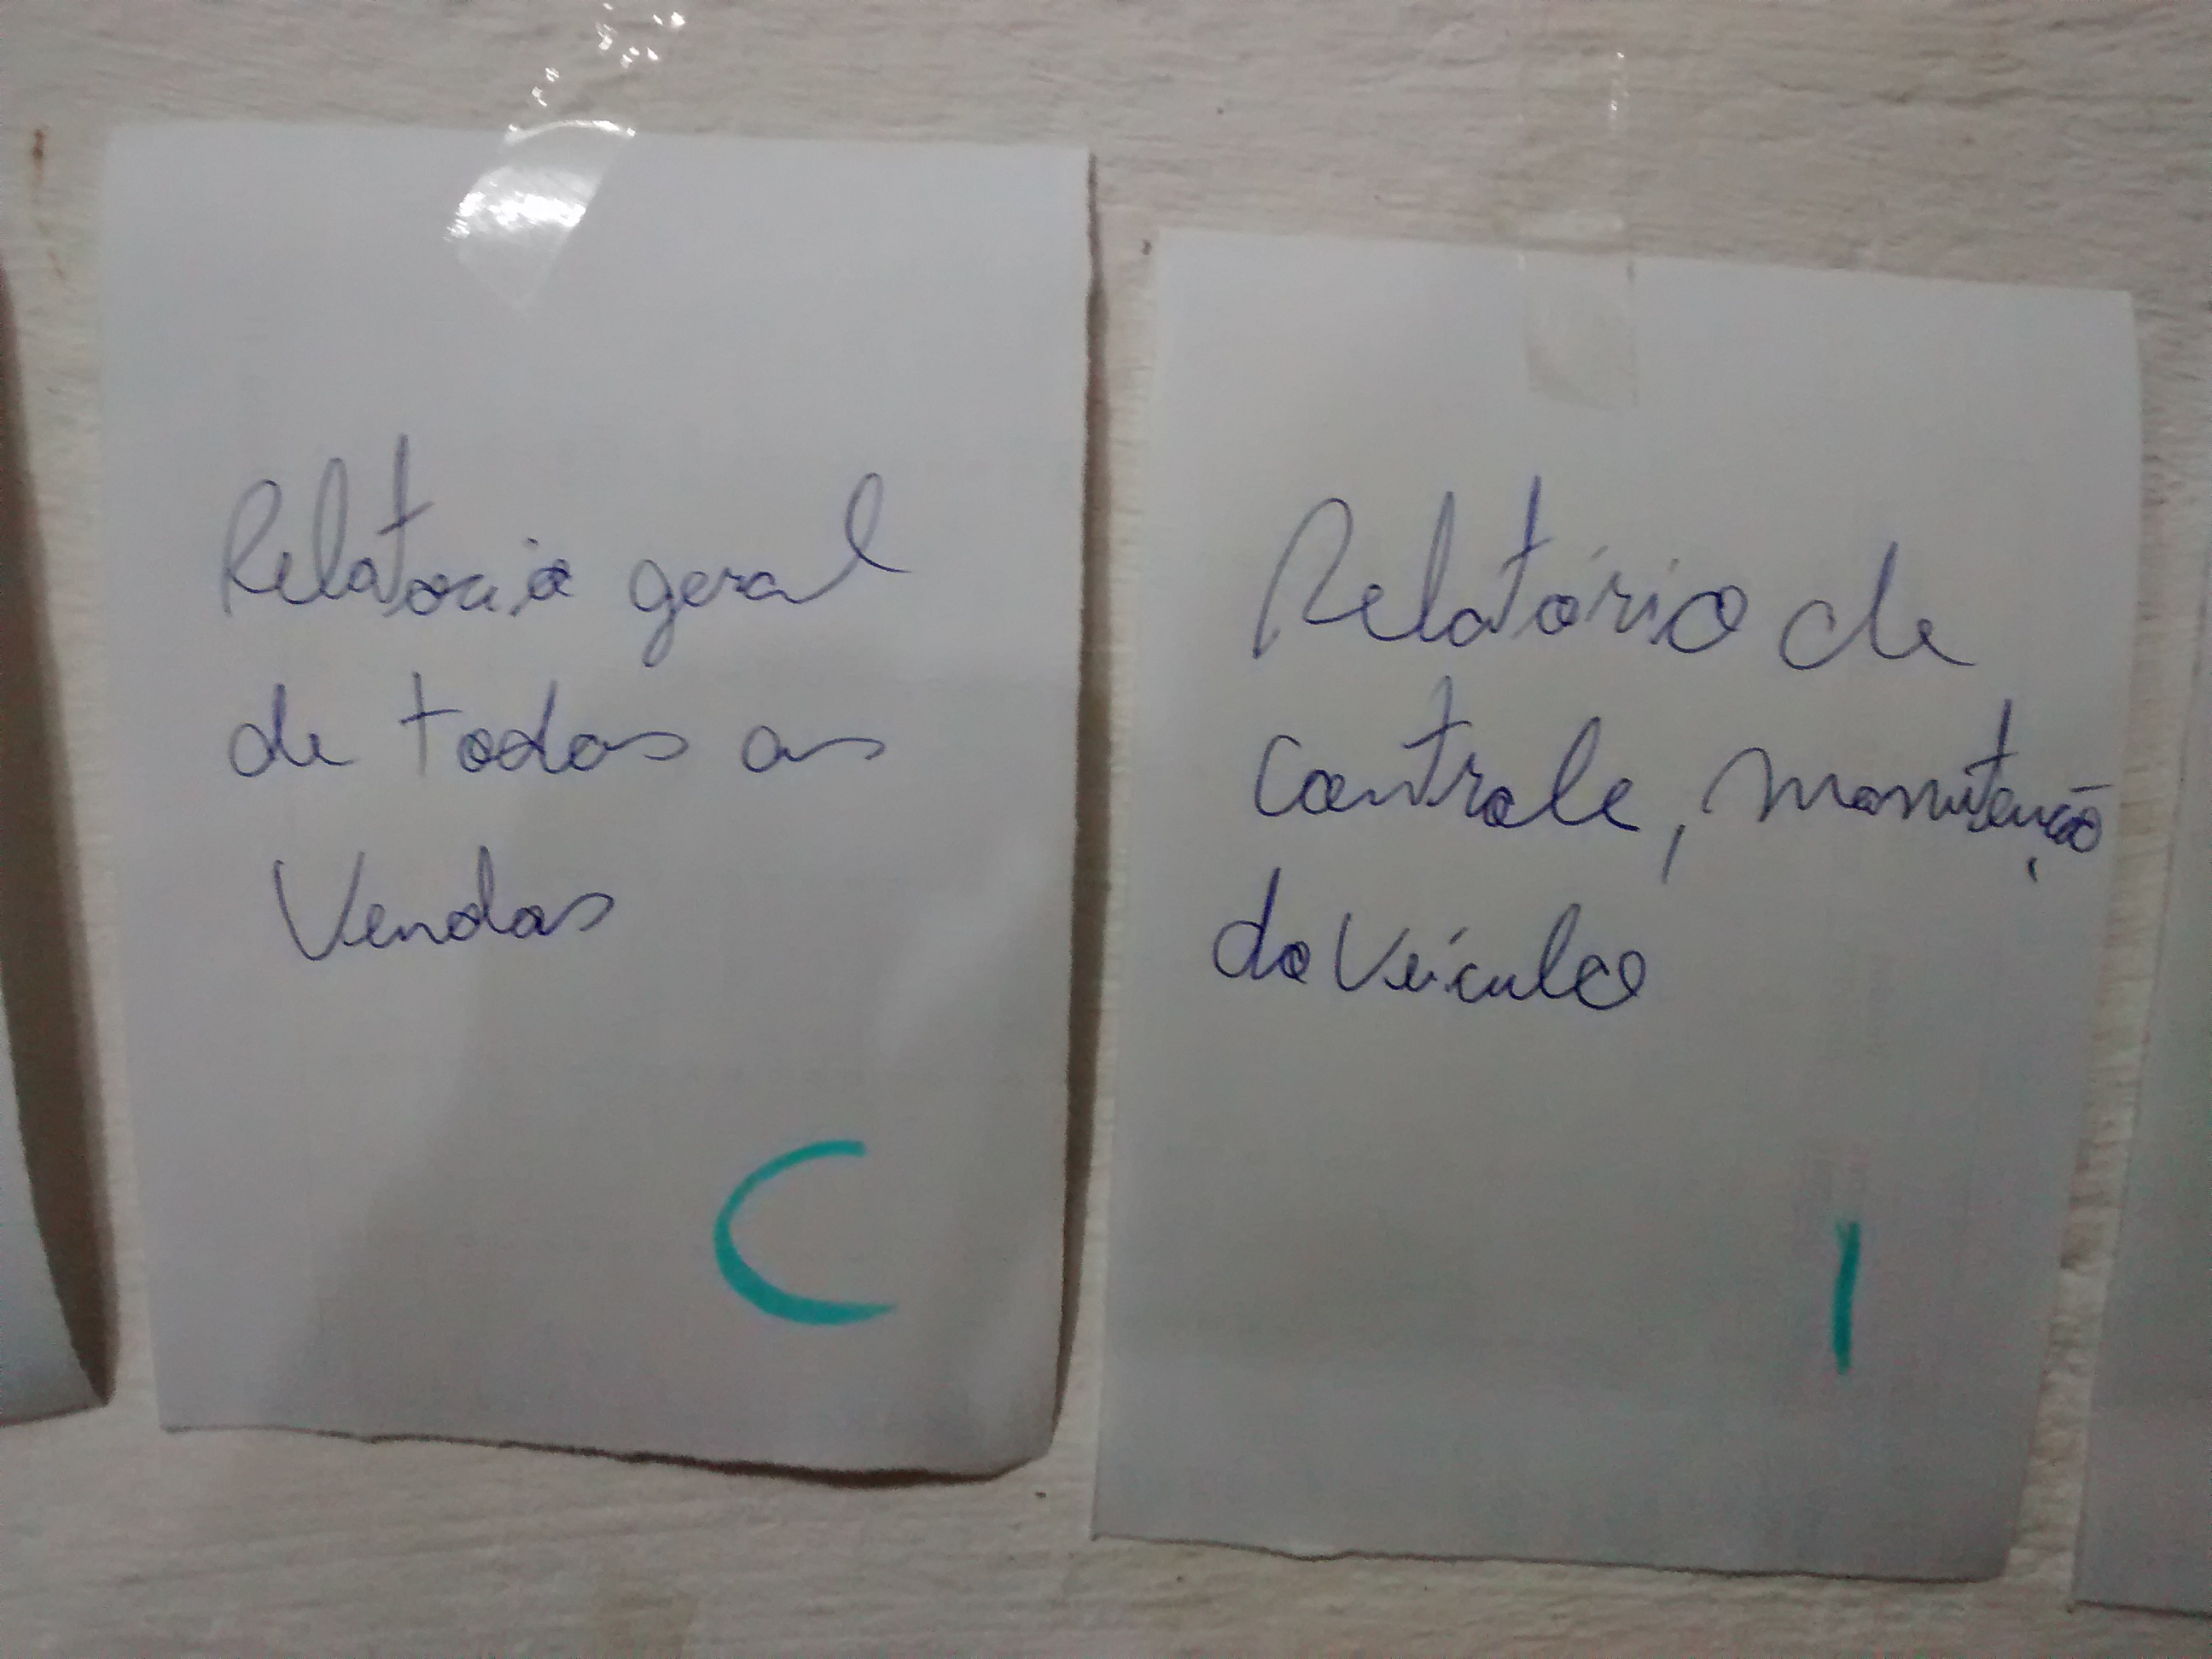 Relatorio geral
de todas as
Vendas
C
Relatório de
Controle, manutenção
do Veículo
I